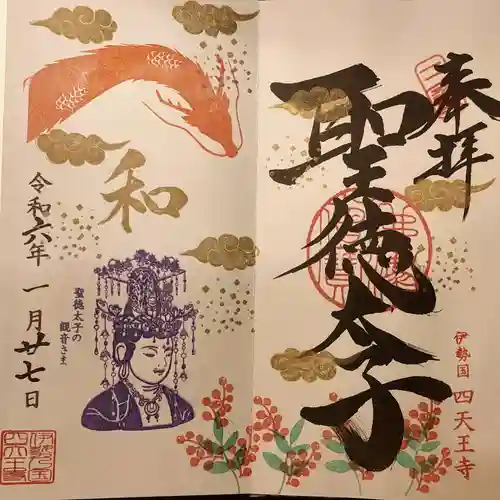 奉拝
聖徳太子
伊勢国 四天王寺
和
聖徳太子の
観音さま
令和六年 一月廿七日